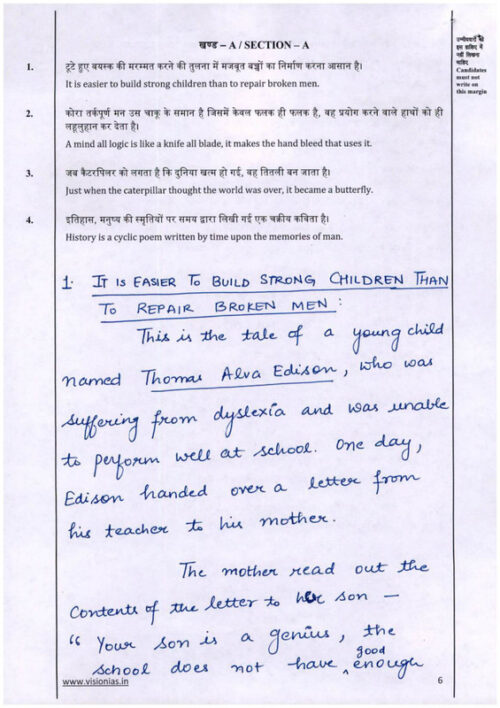 खण्ड – A / SECTION – A
उम्मीदवारों को
इस हाशिए में
नहीं लिखना
चाहिए
Candidates
must not
write on
this margin
1. टूटे हुए वयस्क की मरम्मत करने की तुलना में मजबूत बच्चों का निर्माण करना आसान है।
It is easier to build strong children than to repair broken men.
2. कोरा तर्कपूर्ण मन उस चाकू के समान है जिसमें केवल फलक ही फलक है, वह प्रयोग करने वाले हाथों को ही
लहूलुहान कर देता है।
A mind all logic is like a knife all blade, it makes the hand bleed that uses it.
3. जब कैटरपिलर को लगता है कि दुनिया खत्म हो गई, वह तितली बन जाता है।
Just when the caterpillar thought the world was over, it became a butterfly.
4. इतिहास, मनुष्य की स्मृतियों पर समय द्वारा लिखी गई एक चक्रीय कविता है।
History is a cyclic poem written by time upon the memories of man.
1. IT IS EASIER TO BUILD STRONG CHILDREN THAN
TO REPAIR BROKEN MEN :
This is the tale of a young child
named Thomas Alva Edison, who was
suffering from dyslexia and was unable
to perform well at school. One day,
Edison handed over a letter from
his teacher to his mother.
The mother read out the
contents of the letter to her son –
" Your son is a genius, the
school does not have good enough
www.visionias.in
6